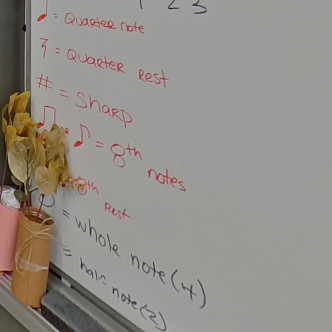 1 2 3
♩ = Quarter note
𝄽 = Quarter Rest
# = Sharp
♫ or ♪ = 8th notes
= 8th Rest
= whole note (4)
= half note (2)